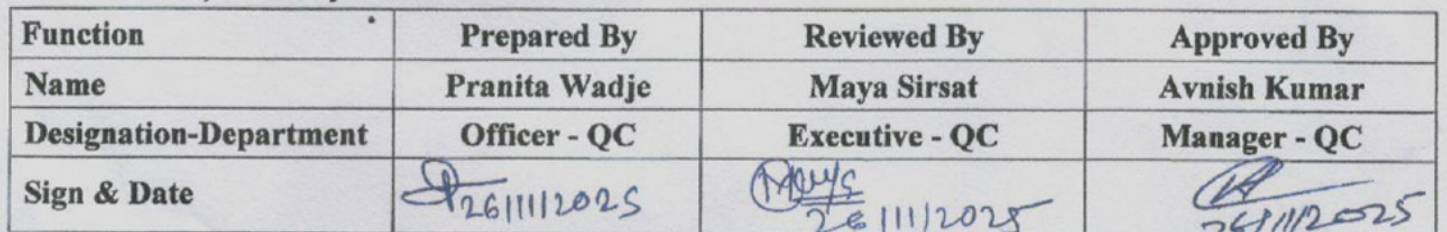 Function Prepared By Reviewed By Approved By
Name Pranita Wadje Maya Sirsat Avnish Kumar
Designation-Department Officer - QC Executive - QC Manager - QC
Sign & Date 26/11/2025 Maya 26/11/2025 26/11/2025